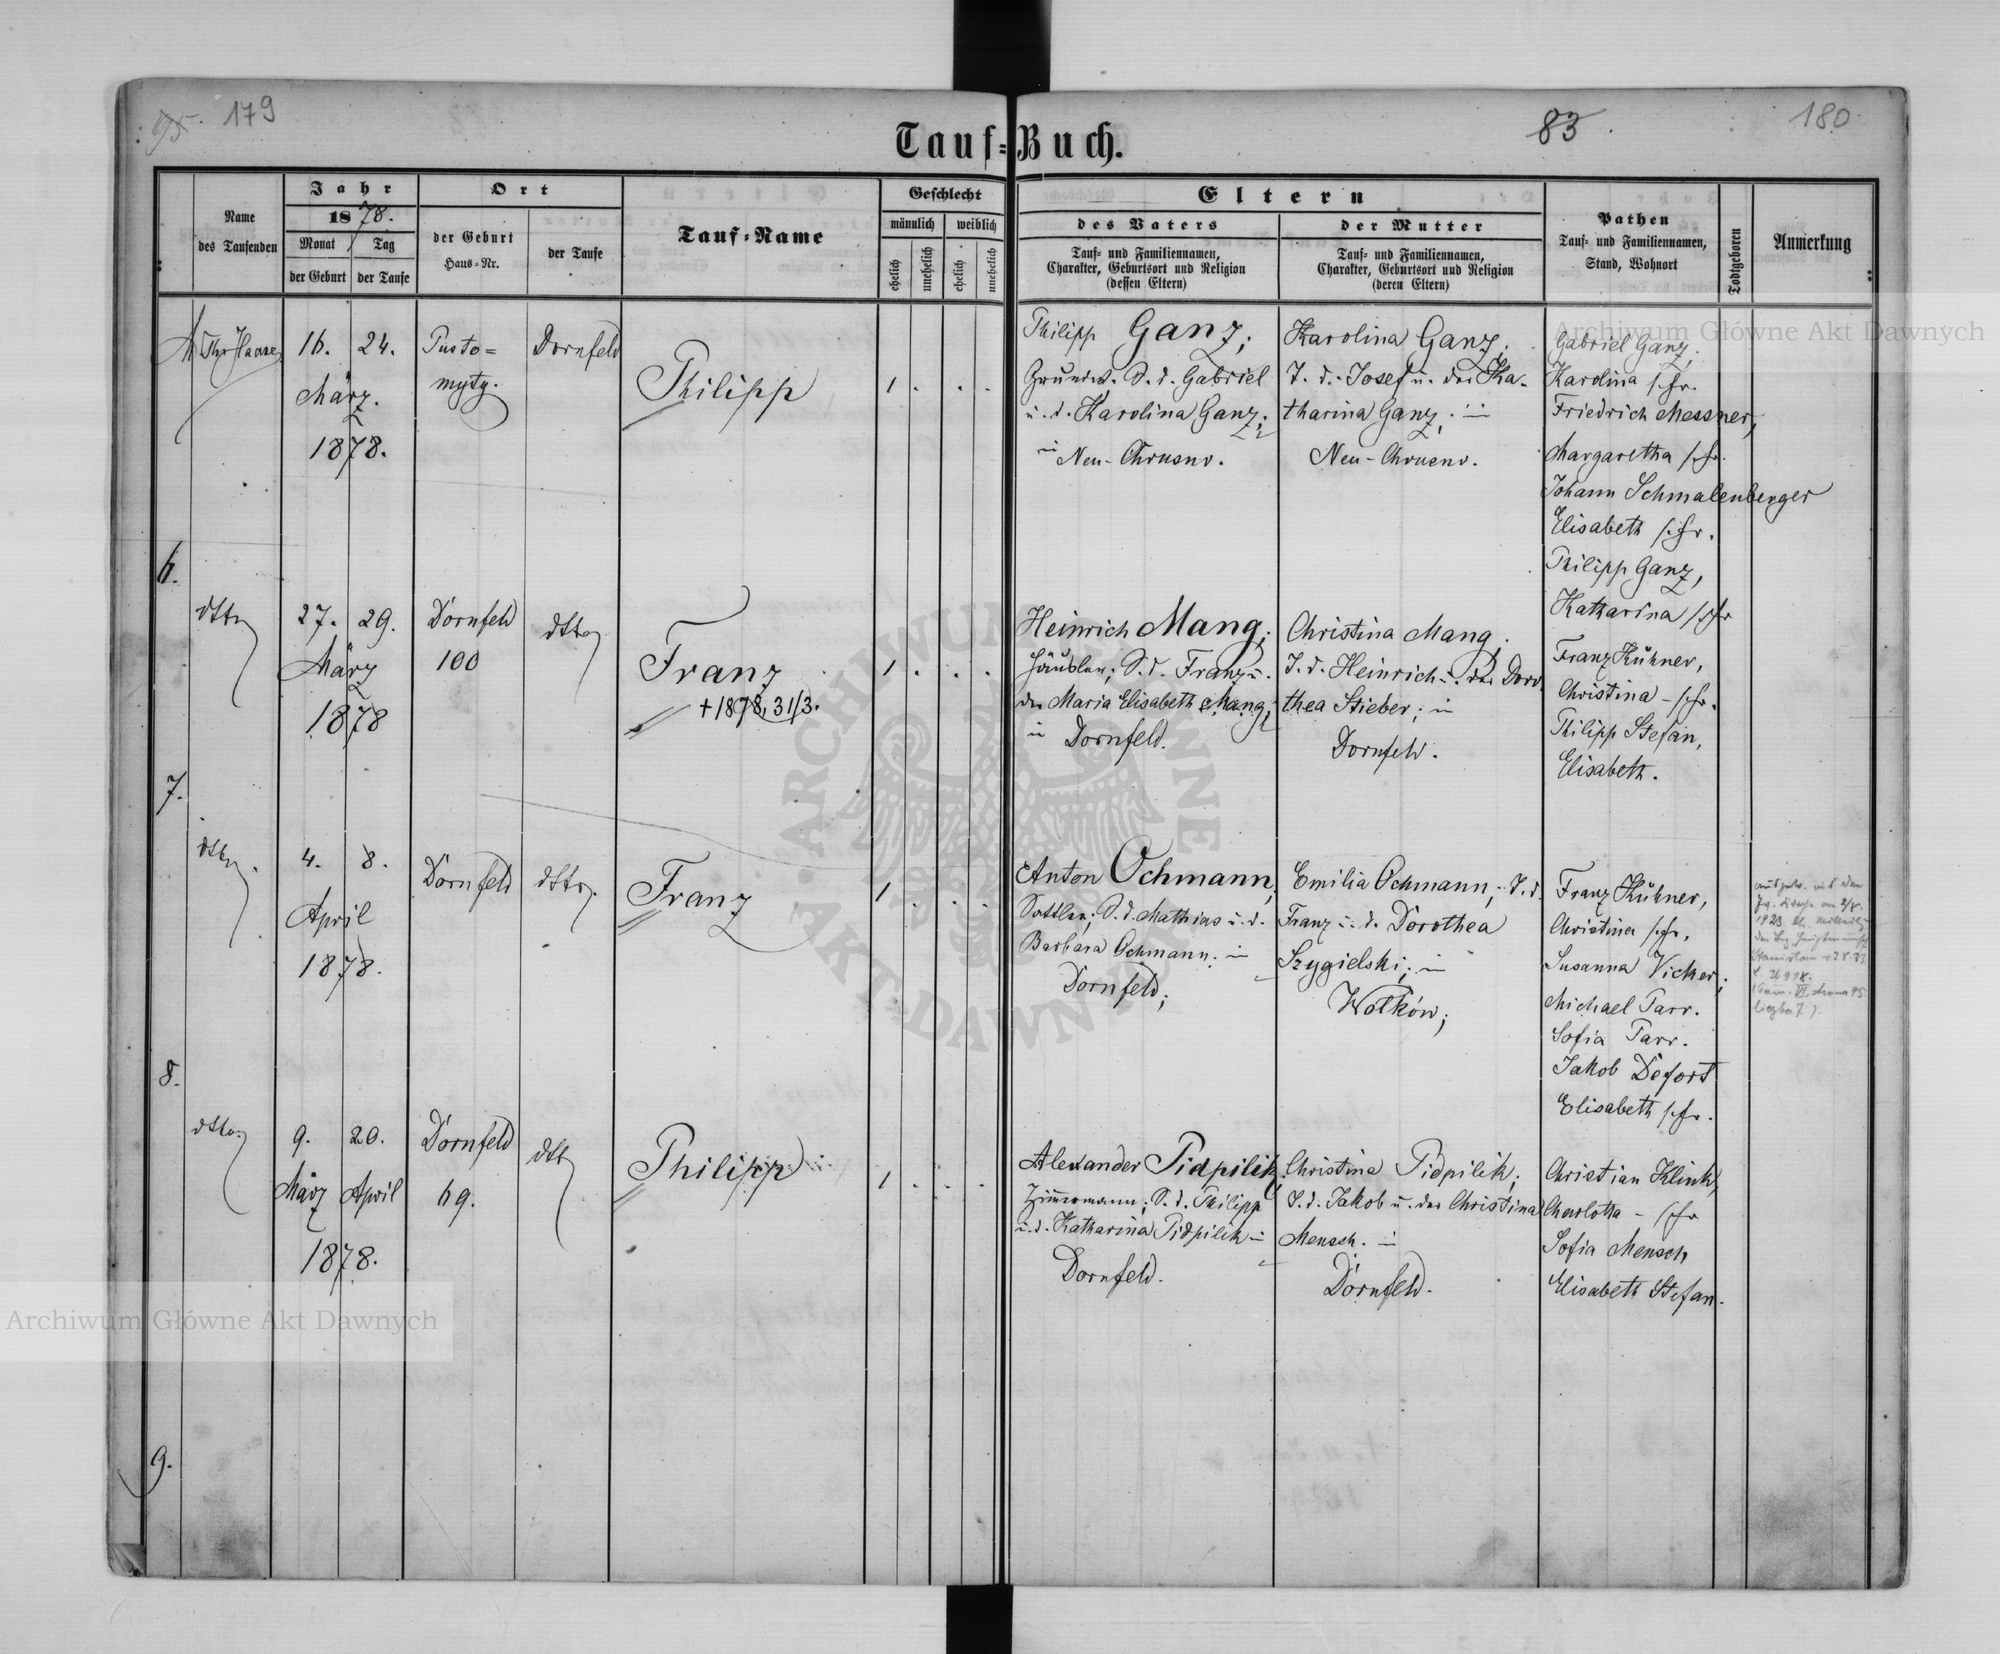 179
83
180
Tauf=Buch.
Name
des Taufenden
Jahr
1878.
Monat
Tag
der Geburt
der Taufe
Ort
der Geburt
Haus=Nr.
der Taufe
Tauf=Name
Geschlecht
männlich
weiblich
ehelich
unehelich
ehelich
unehelich
Eltern
des Vaters
Tauf= und Familiennamen,
Charakter, Geburtsort und Religion
(dessen Eltern)
der Mutter
Tauf= und Familiennamen,
Charakter, Geburtsort und Religion
(deren Eltern)
Pathen
Tauf= und Familiennamen,
Stand, Wohnort
Todtgeboren
Anmerkung
6.
16. 24.
März.
1878.
Pusto=
myty.
Dornfeld
Philipp
1 . . .
Philipp Ganz;
Grundw. S. d. Gabriel
u. d. Karolina Ganz;
in Neu-Chrusno.
Karolina Ganz;
T. d. Josef u. der Ka-
tharina Ganz; in
Neu-Chrusno.
Gabriel Ganz;
Karolina s. Fr.
Friedrich Messner,
Margaretha s. Fr.
Johann Schmalenberger
Elisabeth s. Fr.
Philipp Ganz,
Katharina s. Fr
7.
dtto
27. 29.
März
1878
Dornfeld
100
dtto
Franz
+1878, 31/3.
1 . . .
Heinrich Mang;
Häusler; S. d. Franz u.
der Maria Elisabeth Mang;
in Dornfeld.
Christina Mang;
T. d. Heinrich u. der Doro
thea Stieber; in
Dornfeld.
Franz Kühner,
Christina - s. Fr.
Philipp Stefan,
Elisabeth.
8.
dtto.
4. 8.
April
1878.
Dornfeld
dtto.
Franz
1 . . .
Anton Ochmann,
Sattler; S. d. Mathias u. d.
Barbara Ochmann; in
Dornfeld;
Emilia Ochmann; T. d.
Franz u. d. Dorothea
Szygielski; in
Wołków;
Franz Kühner,
Christina s. Fr.
Susanna Vicker;
Michael Parr.
Sofia Parr.
Jakob Defort
Elisabeth s. Fr.
9.
dtto.
9. 20.
März April
1878.
Dornfeld
69.
dtto
Philipp
1 . . .
Alexander Pidpilik;
Zimmermann; S. d. Philipp
u. d. Katharina Pidpilik in
Dornfeld.
Christina Pidpilik;
T. d. Jakob u. der Christina
Mensch. in
Dornfeld.
Christian Klink,
Charlotta - s. Fr
Sofia Mensch
Elisabeth Stefan.
Archiwum Główne Akt Dawnych
ARCHIWUM GŁÓWNE AKT DAWNYCH
Archiwum Główne Akt Dawnych